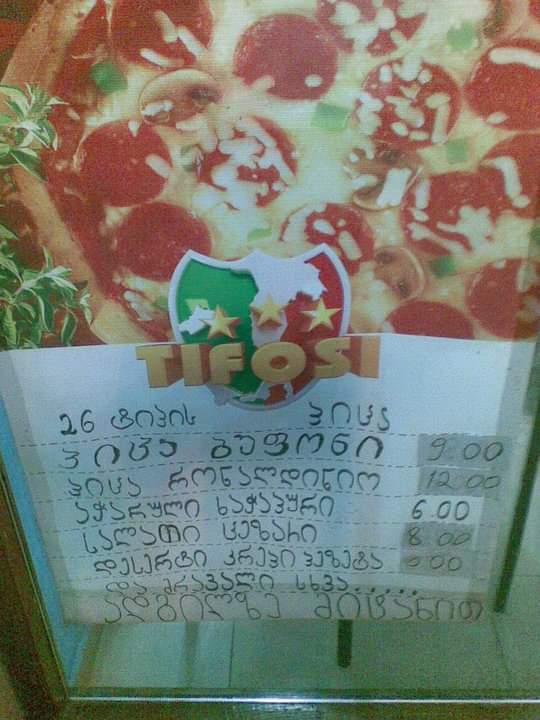 TIFOSI
26 ტიპის პიცა
პიცა ბუფონი 9.00
პიცა რონალდინიო 12.00
აჭარული ხაჭაპური 6.00
სალათი ცეზარი 8.00
დესერტი კრეპი
და მრავალი სხვა.....
ადგილზე მიტანით